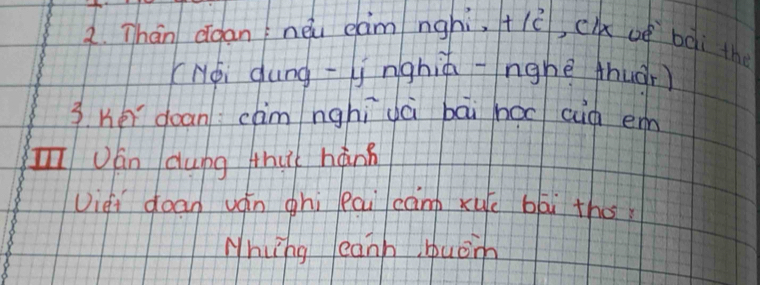 2. Thân đoạn: nêu cảm nghĩ, t/c, c/x về bài thơ
(Nội dung - ý nghĩa - nghệ thuật)
3. Kết đoạn: cảm nghĩ và bài học của em
III Vận dụng thực hành
Viết đoạn văn ghi lại cảm xúc bài thơ:
Những cánh buồm